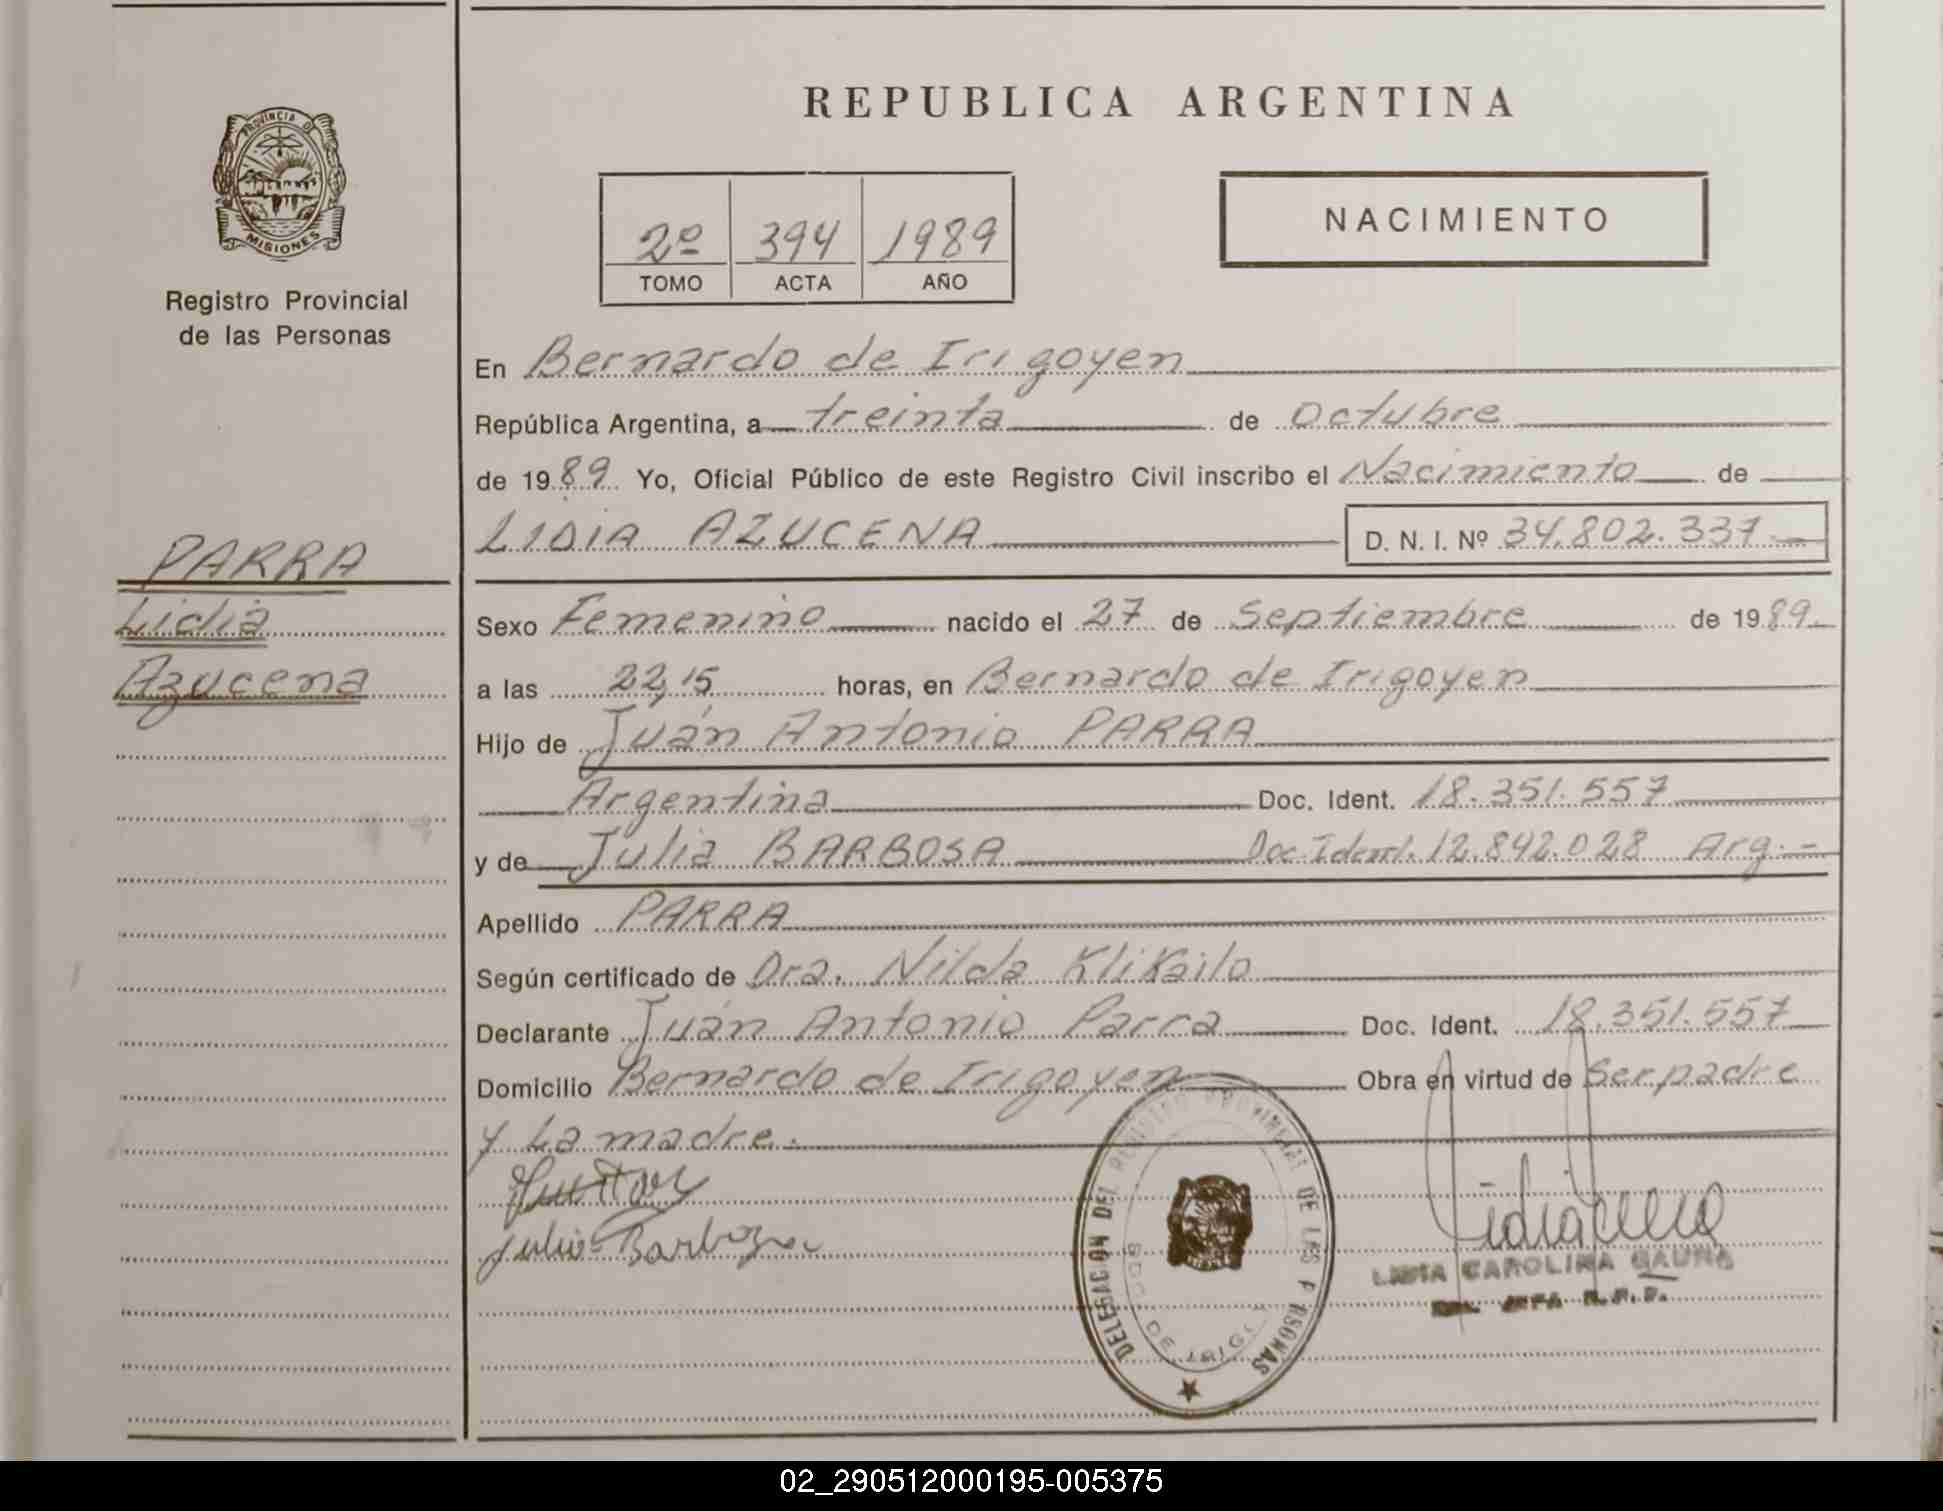 PROVINCIA DE
MISIONES
Registro Provincial
de las Personas
PARRA
Lidia
Azucena
REPUBLICA ARGENTINA
2º 394 1989
TOMO ACTA AÑO
NACIMIENTO
En Bernardo de Irigoyen
República Argentina, a treinta de Octubre
de 1989. Yo, Oficial Público de este Registro Civil inscribo el Nacimiento de
LIDIA AZUCENA D. N. I. Nº 34.802.337.-
Sexo Femenino nacido el 27 de Septiembre de 1989.
a las 22,15 horas, en Bernardo de Irigoyen
Hijo de Juán Antonio PARRA
Argentina Doc. Ident. 18.351.557
y de Julia BARBOSA Doc. Ident. 12.842.028 Arg.-
Apellido PARRA
Según certificado de Dra. Nilda Klikailo
Declarante Juán Antonio Parra Doc. Ident. 18.351.557
Domicilio Bernardo de Irigoyen Obra en virtud de Ser padre
y La madre.
Julia Barboza
DELEGACION DEL REGISTRO PROVINCIAL DE LAS PERSONAS
BDO. DE IRIGOYEN
LIDIA CAROLINA GAUNA
JEFA R.P.P.
02_290512000195-005375